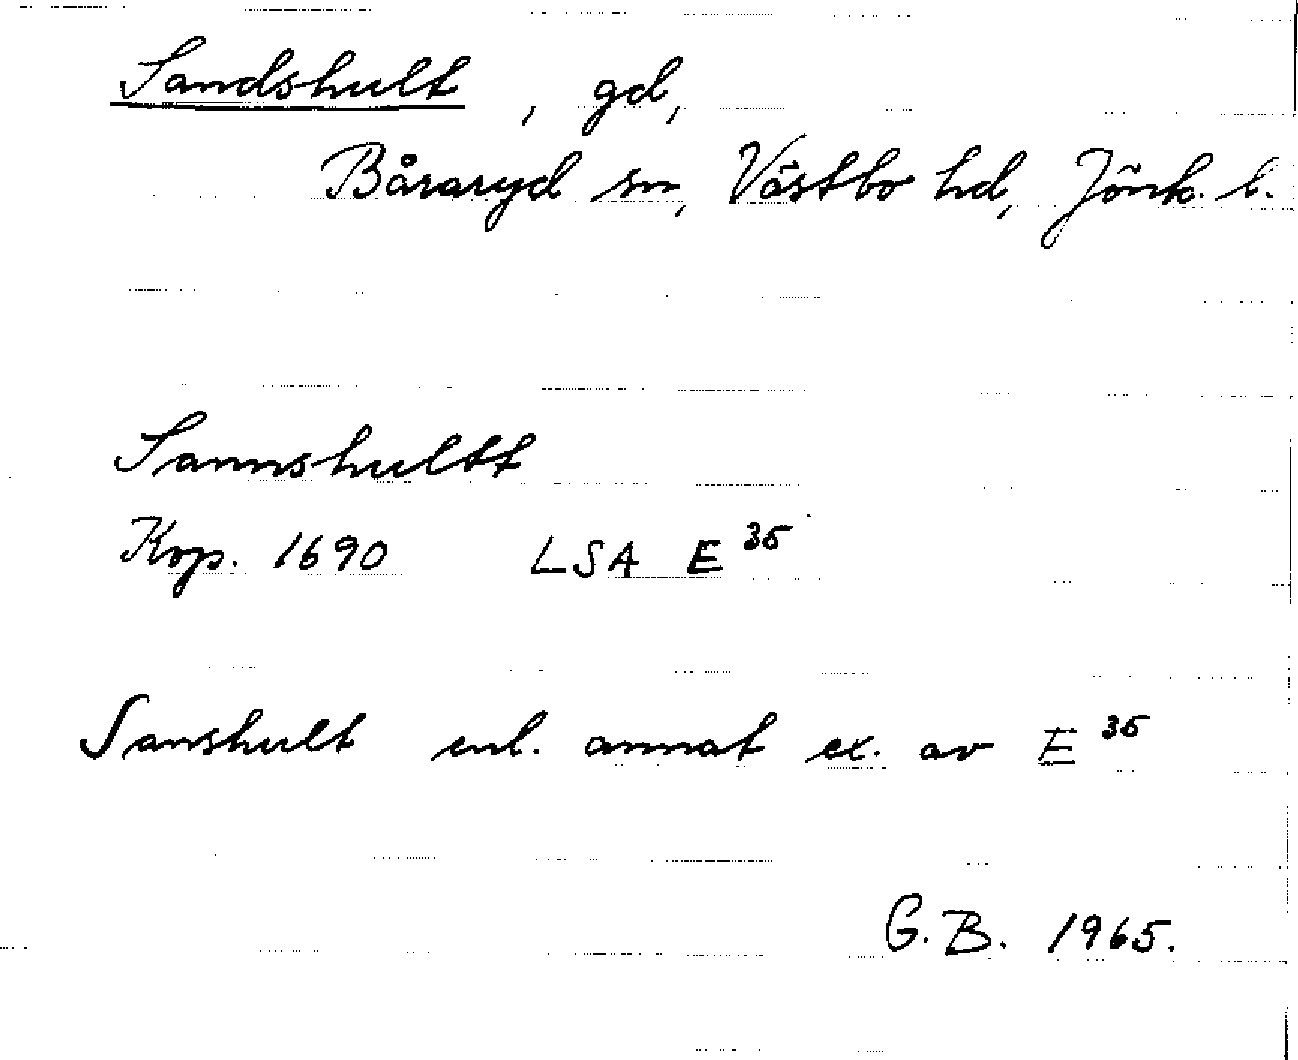 Sandshult, gd,
Båraryd sn, Västbo hd, Jönk. l.
Sannshultt
Kop. 1690 LSA E 35
Sanshult enl. annat ex. av E 35
G.B. 1965.